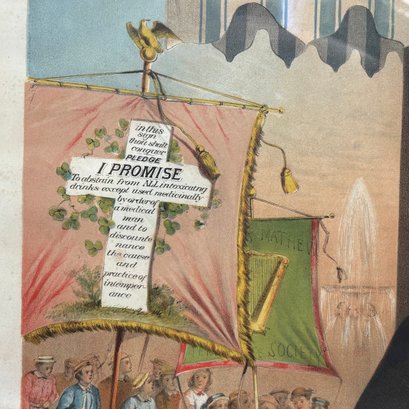 in this
sign
thou shalt
conquer
PLEDGE
I PROMISE
To abstain from ALL intoxicating
drinks except used medicinally
by order of
a medical
man
and to
discounte
nance
the cause
and
practice of
intemper-
ance
MATHE
SOCIETY